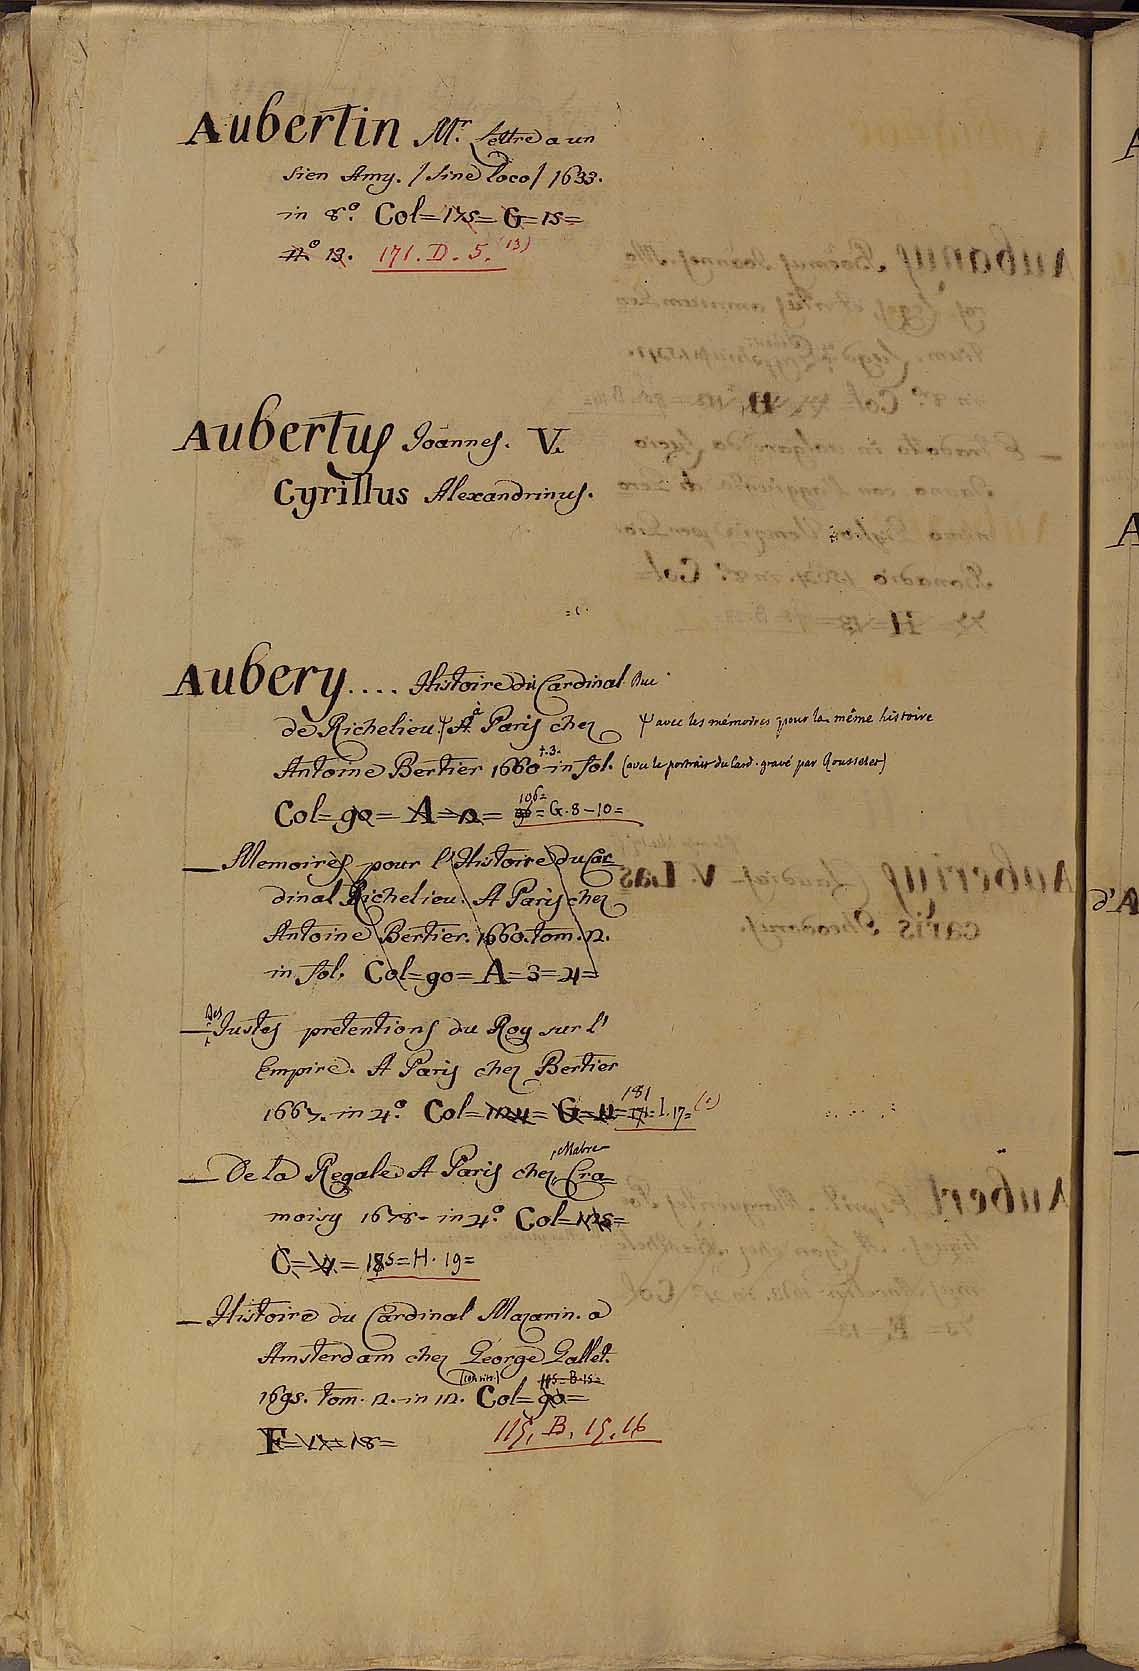 Aubertin Mr. Lettre a un
sien Amy. / sine loco / 1633.
in 8o. Col= 175= G= 15=
no. 13. 171. D. 5. (13)
Aubertus Joannes. V.
Cyrillus Alexandrinus.
Aubery.... Histoire du Cardinal Duc
de Richelieu. Ψ A à Paris chez Ψ avec les mémoires pour la même histoire
Antoine Bertier 1660 t.3. in fol. (avec le portrait du Card. gravé par Rousselet)
Col= 90= A= 2= 106= G.8-10=
— Memoires pour l'Histoire du Car=
dinal Richelieu. A Paris chez
Antoine Bertier. 1660. tom. 2.
in fol. Col= 90= A= 3= 4=
— Des Justes pretentions du Roy sur l'
Empire. A Paris chez Bertier
1667. in 4o. Col= 124= G= 11= 181 171= I. 17= (1)
— De la Regale A Paris chez Mabre Cra=
moisy 1678. in 4o. Col= 125=
C= 4= 185= H. 19=
— Histoire du Cardinal Mazarin. a
Amsterdam chez George Gallet.
1695. tom. 2. in 12. Col= 90= 115= B. 15=
F= 17= 18= 115. B. 15. 16